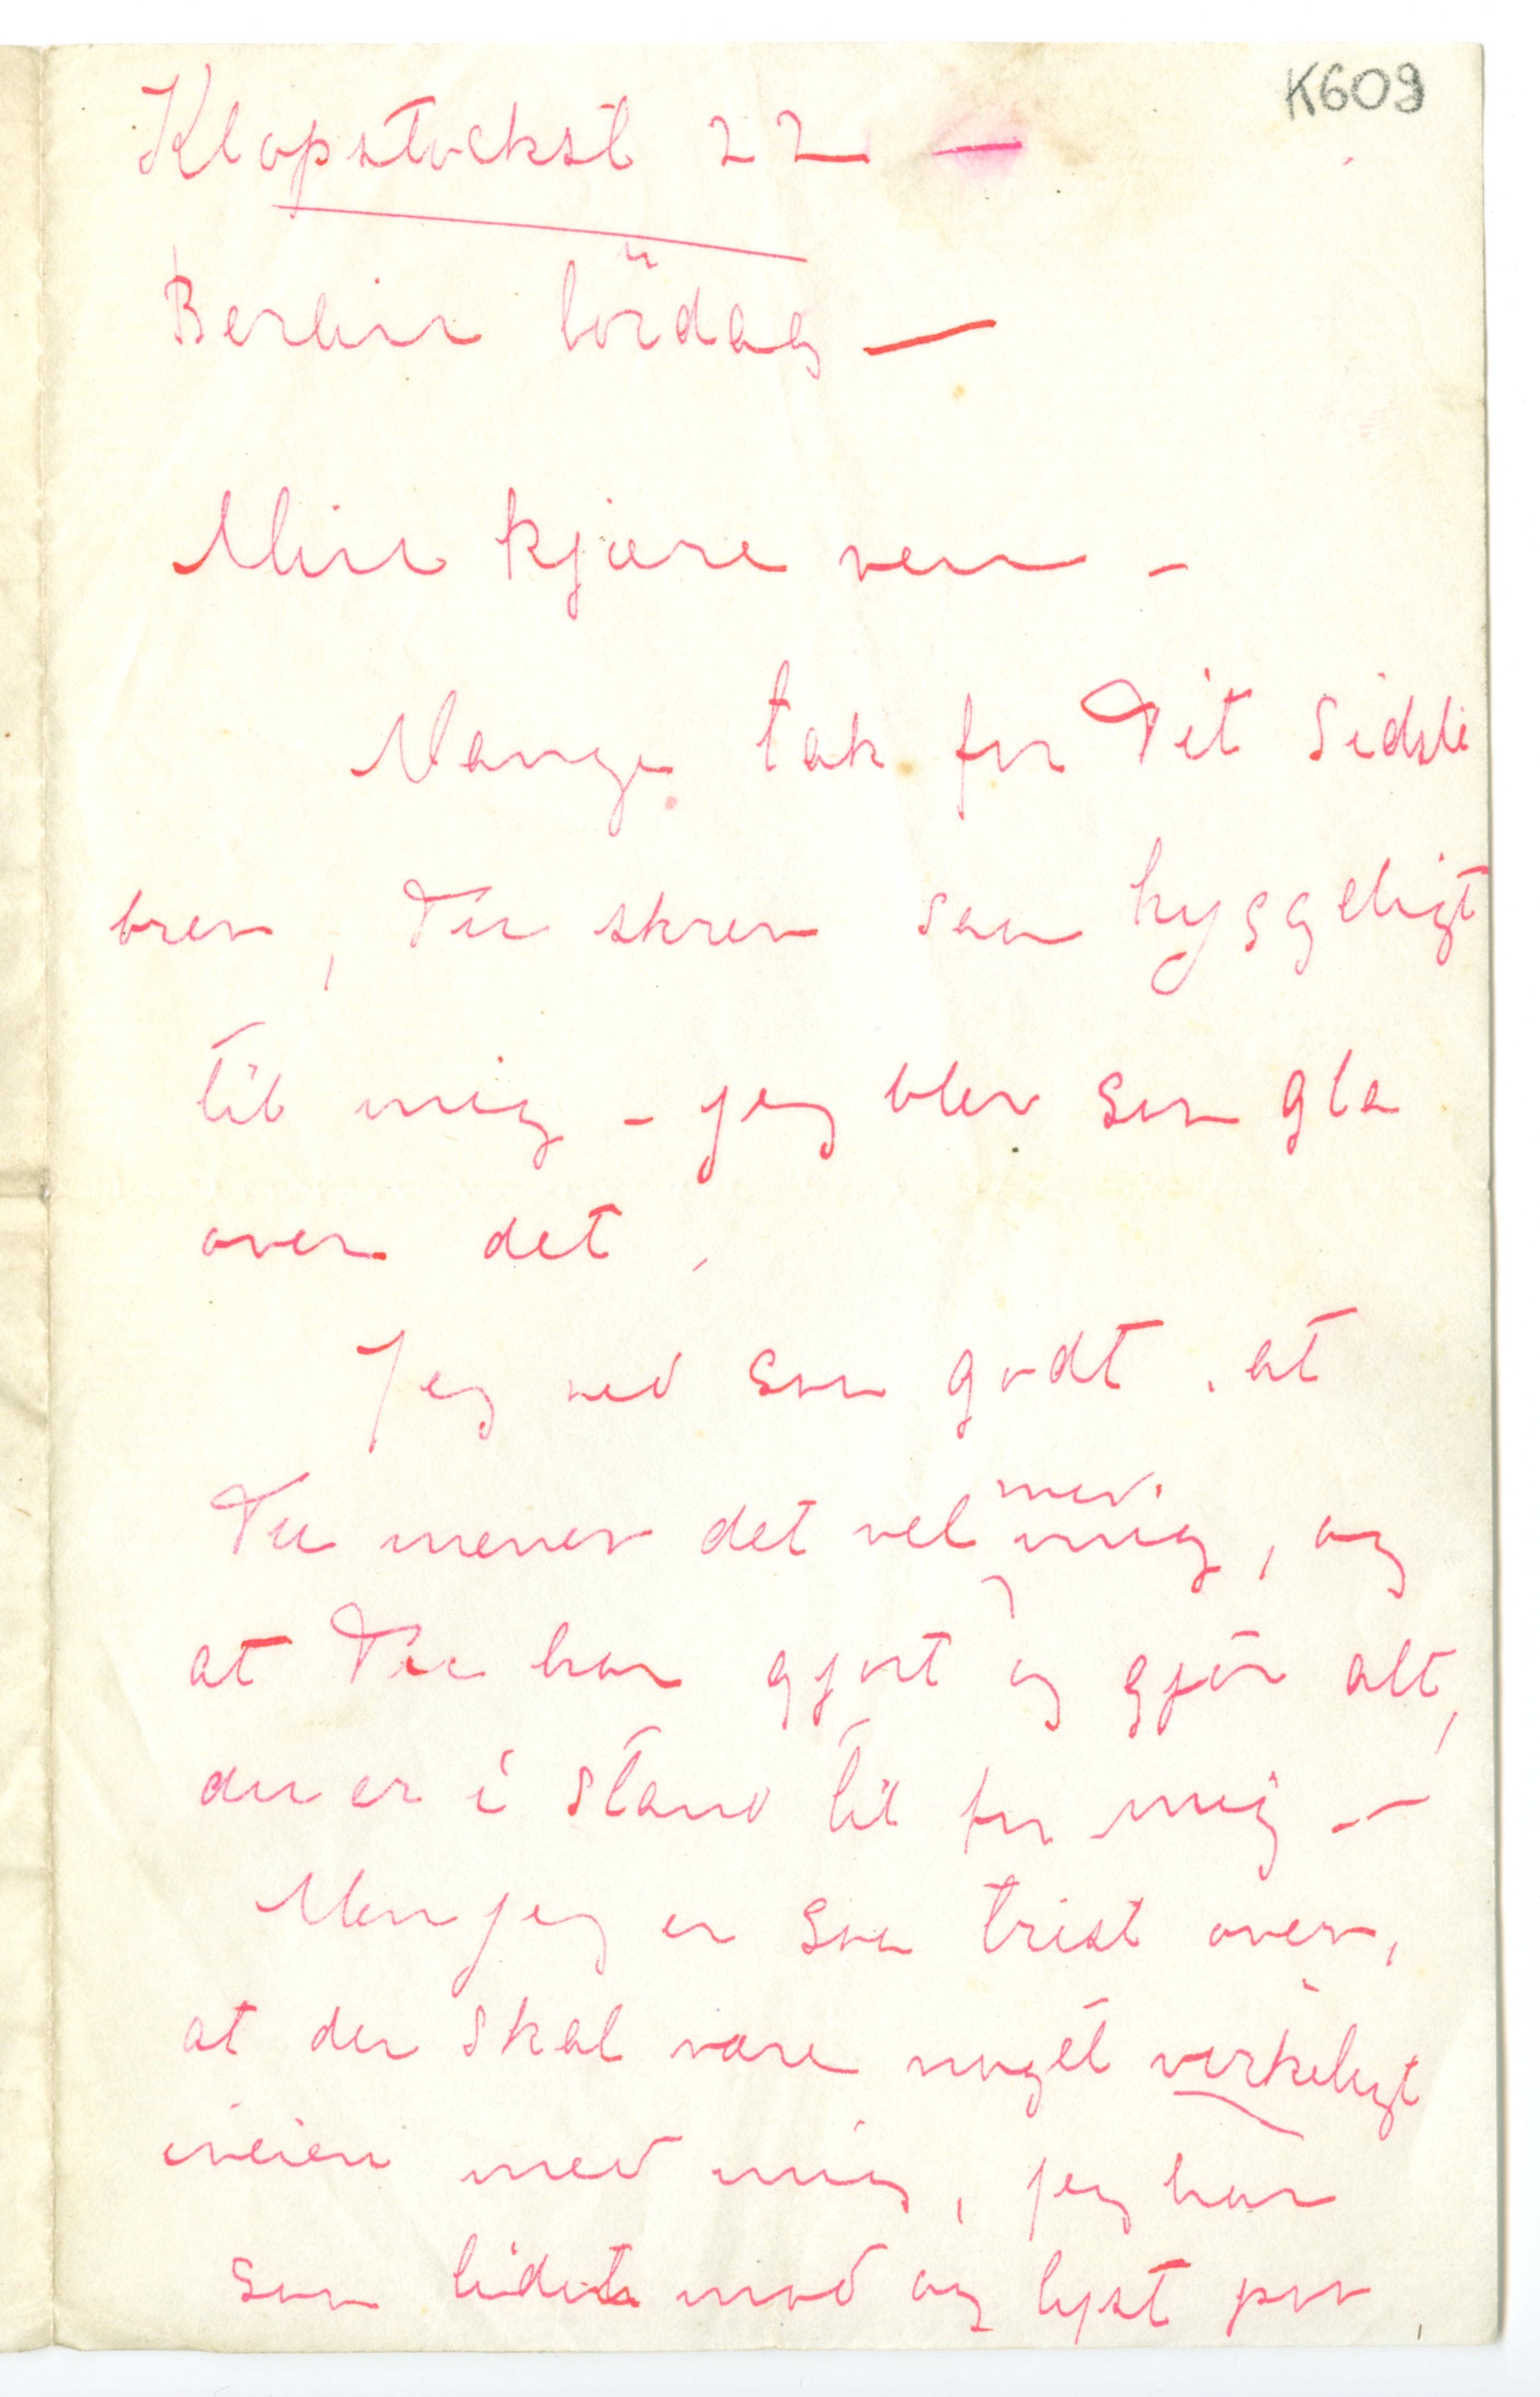 K609
Klopstockst 22 —
Berlin lördag —
Min kjære ven -
Mange tak for Dit sidste
brev, Du skrev saa hyggeligt
til mig - jeg blev saa gla
over det,
Jeg ved saa godt, at
Du mener det vel med mig, og
at Du har gjort og gjør alt,
du er i stand til for mig —
Men jeg er saa trist over,
at der skal være noget virkeligt
iveien med mig, jeg har
saa lidet mod og lyst paa